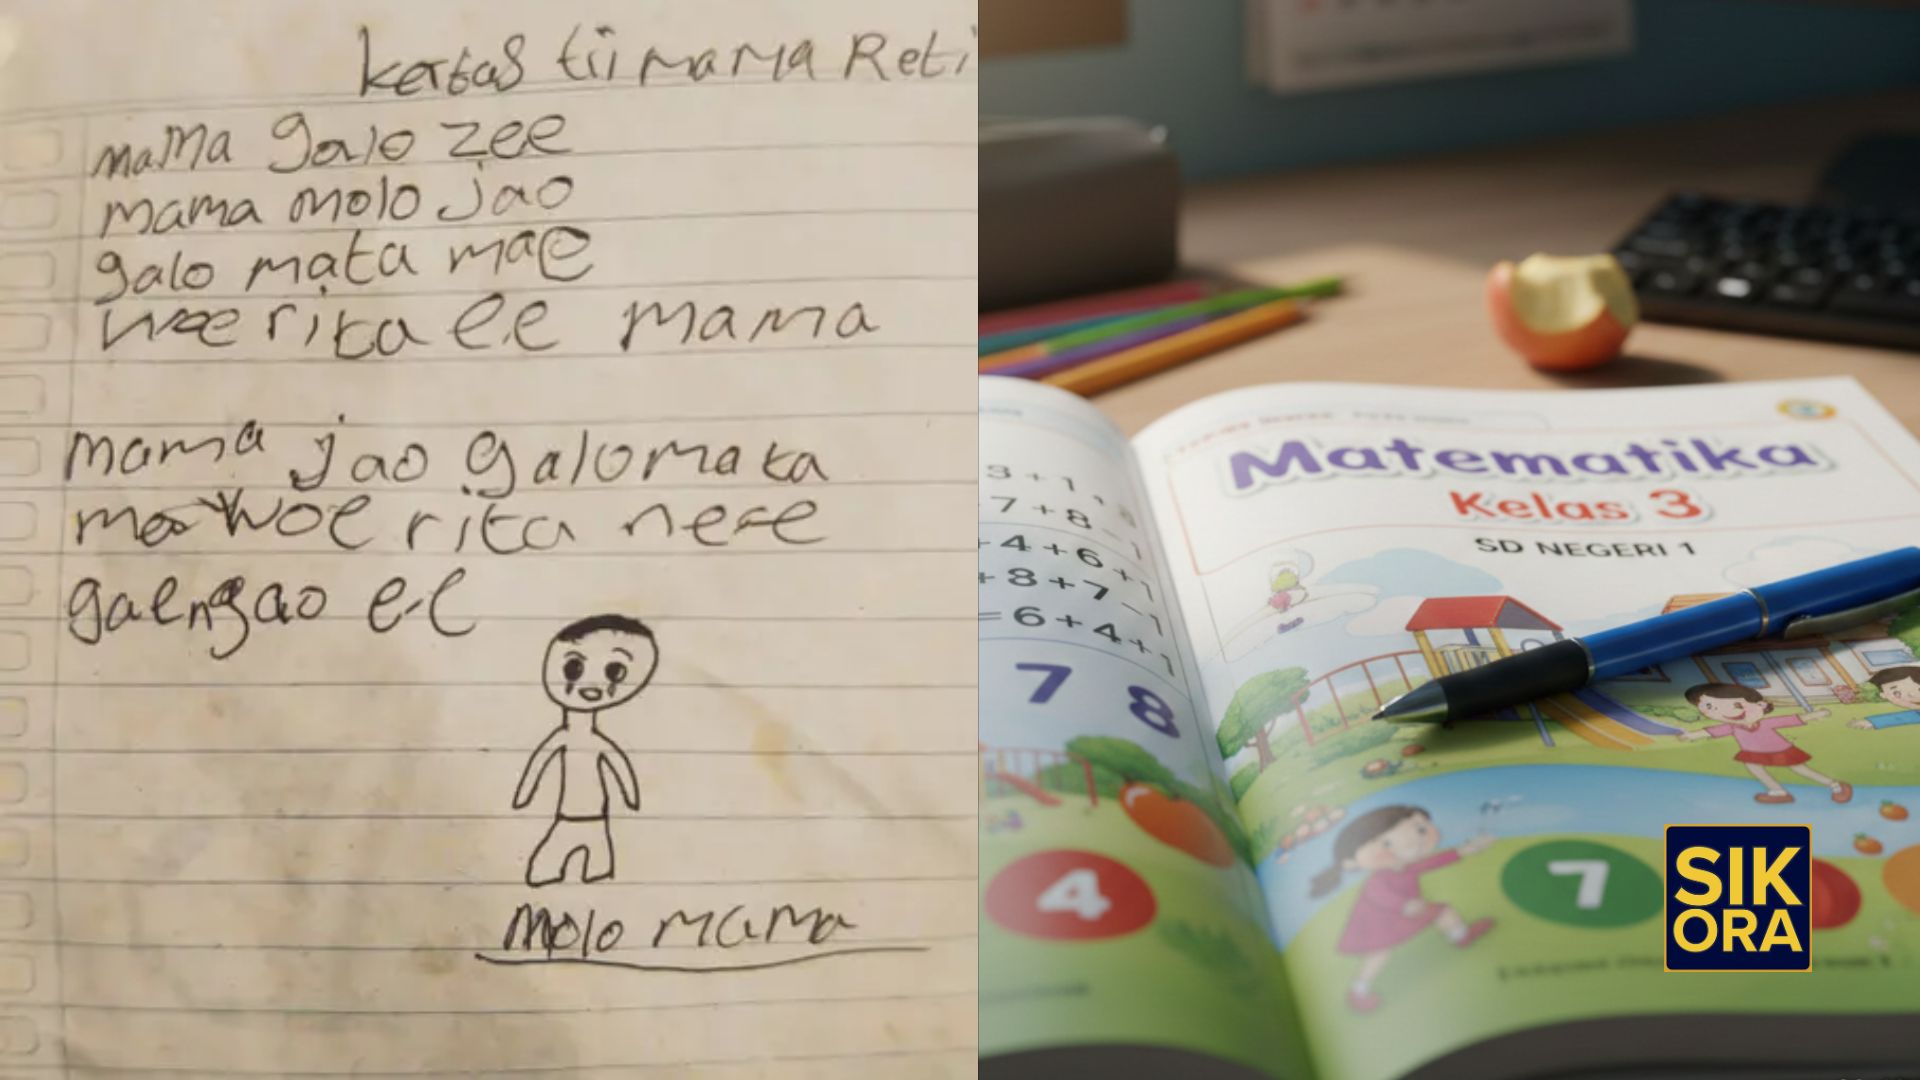 kertas tii mama Reti
mama galo zee
mama molo jao
galo mata mae
woe rita ee mama
mama jao galo mata
mae woe rita nee
gaengao ee
molo mama
3 + 1 +
7 + 8 - 1
+ 4 + 6 + 1
+ 8 + 7 - 1
= 6 + 4 + 1
7 8
4
Matematika
Kelas 3
SD NEGERI 1
7
SIK
ORA